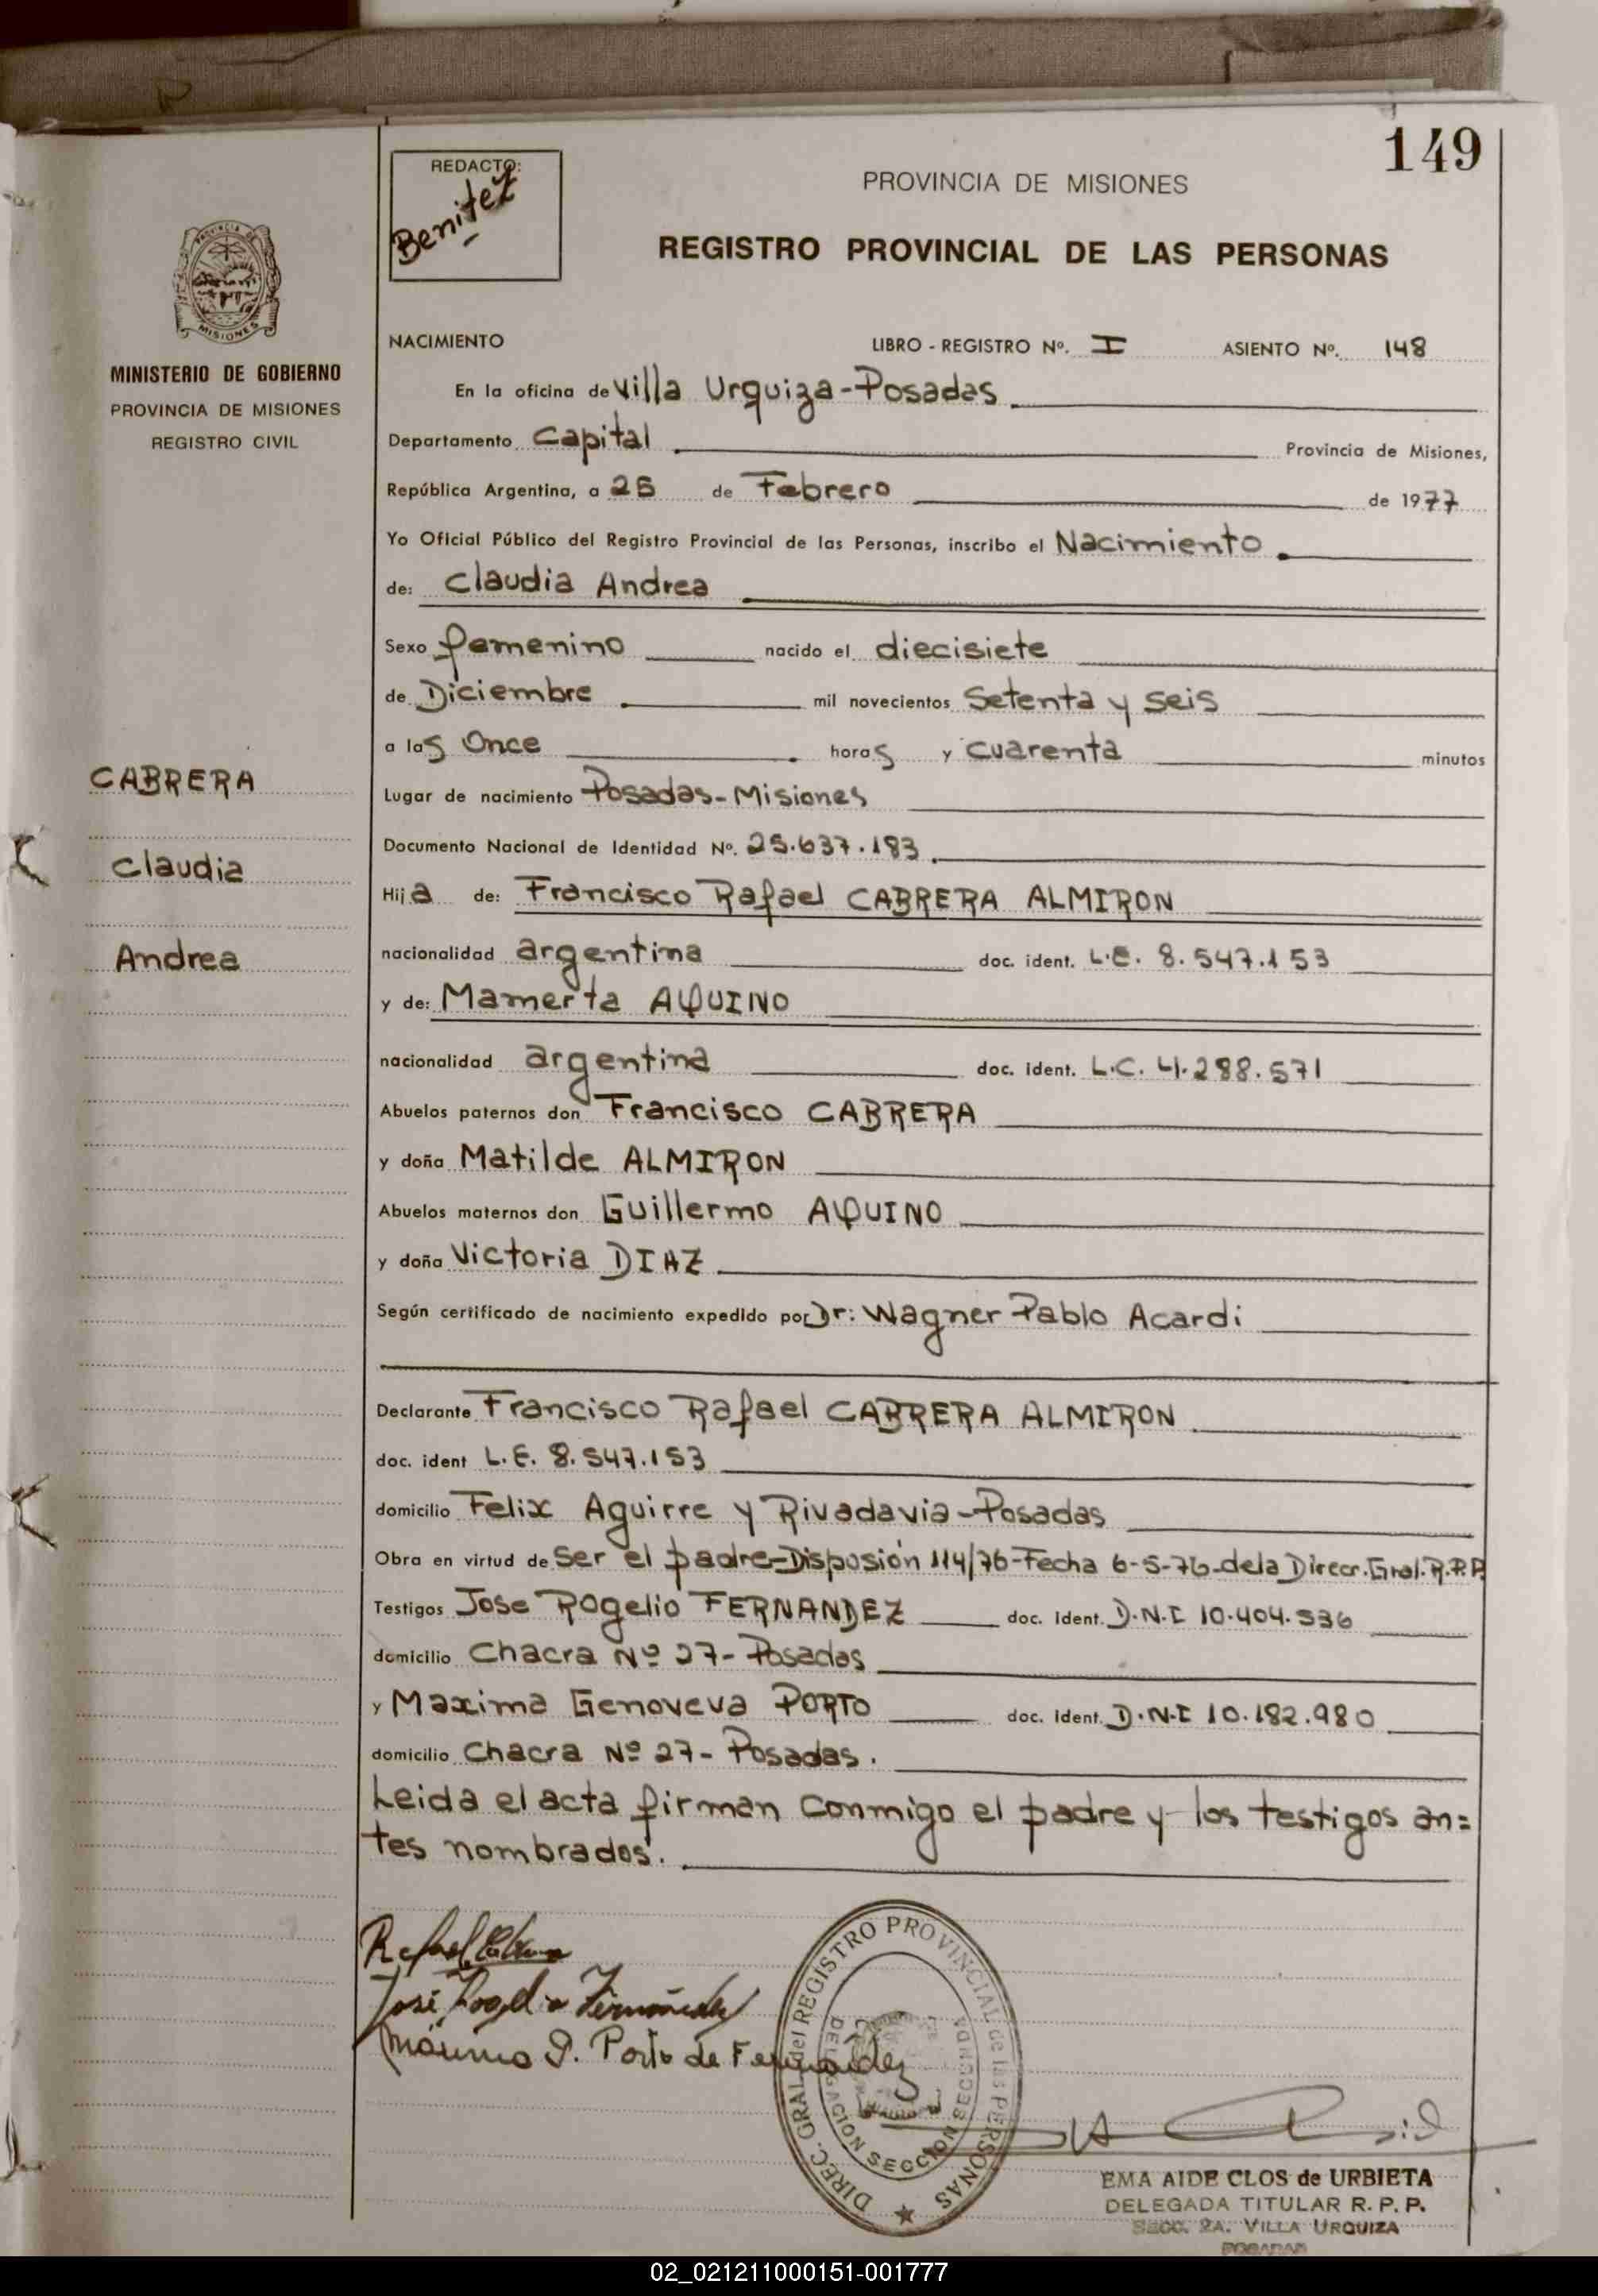 149
REDACTO:
Benitez
PROVINCIA DE MISIONES
REGISTRO PROVINCIAL DE LAS PERSONAS
MISIONES
MINISTERIO DE GOBIERNO
PROVINCIA DE MISIONES
REGISTRO CIVIL
CABRERA
Claudia
Andrea
NACIMIENTO LIBRO - REGISTRO Nº. I ASIENTO Nº. 148
En la oficina de Villa Urquiza - Posadas
Departamento Capital Provincia de Misiones,
República Argentina, a 25 de Febrero de 1977
Yo Oficial Público del Registro Provincial de las Personas, inscribo el Nacimiento
de: Claudia Andrea
Sexo femenino nacido el diecisiete
de Diciembre mil novecientos Setenta y seis
a las Once horas y cuarenta minutos
Lugar de nacimiento Posadas - Misiones
Documento Nacional de Identidad Nº. 25.637.183
Hija de: Francisco Rafael CABRERA ALMIRON
nacionalidad argentina doc. ident. L.E. 8.547.153
y de: Mamerta AQUINO
nacionalidad argentina doc. ident. L.C. 4.288.571
Abuelos paternos don Francisco CABRERA
y doña Matilde ALMIRON
Abuelos maternos don Guillermo AQUINO
y doña Victoria DIAZ
Según certificado de nacimiento expedido por Dr: Wagner Pablo Acardi
Declarante Francisco Rafael CABRERA ALMIRON
doc. ident L.E. 8.547.153
domicilio Felix Aguirre y Rivadavia - Posadas
Obra en virtud de Ser el padre - Disposión 114/76 - Fecha 6-5-76 - de la Direcc. Gral. R.P.P.
Testigos Jose Rogelio FERNANDEZ doc. ident. D.N.I 10.404.536
domicilio Chacra Nº 27 - Posadas
y Maxima Genoveva PORTO doc. ident. D.N.I 10.182.980
domicilio Chacra Nº 27 - Posadas.
Leida el acta firman conmigo el padre y los testigos an=
tes nombrados.
Rafael Cabrera
José Rogelio Fernández
Máxima G. Porto de Fernández
DIREC. GRAL. del REGISTRO PROVINCIAL de las PERSONAS
DELEGACION SECCION SEGUNDA
EMA AIDE CLOS de URBIETA
DELEGADA TITULAR R. P. P.
SECC. 2A. VILLA URQUIZA
POSADAS
02_021211000151-001777